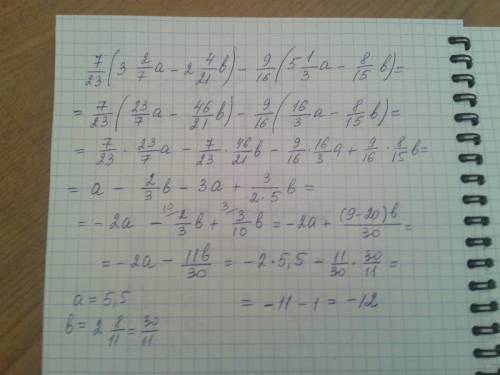 7/23 (3 2/7 a − 2 4/21 в) − 9/16 (5 1/3 a − 8/15 в) =
= 7/23 · (23/7 a − 46/21 в) − 9/16 (16/3 a − 8/15 в) =
= 7/23 · 23/7 a − 7/23 · 46/21 в − 9/16 · 16/3 a + 9/16 · 8/15 в =
= a − 2/3 в − 3a + 3/(2·5) в =
= −2a − 10/ 2/3 в + 3/ 3/10 в = −2a + (9−20)в/30 =
= −2a − 11в/30 = −2·5,5 − 11/30 · 30/11 =
a = 5,5 = −11 − 1 = −12
в = 2 8/11 = 30/11